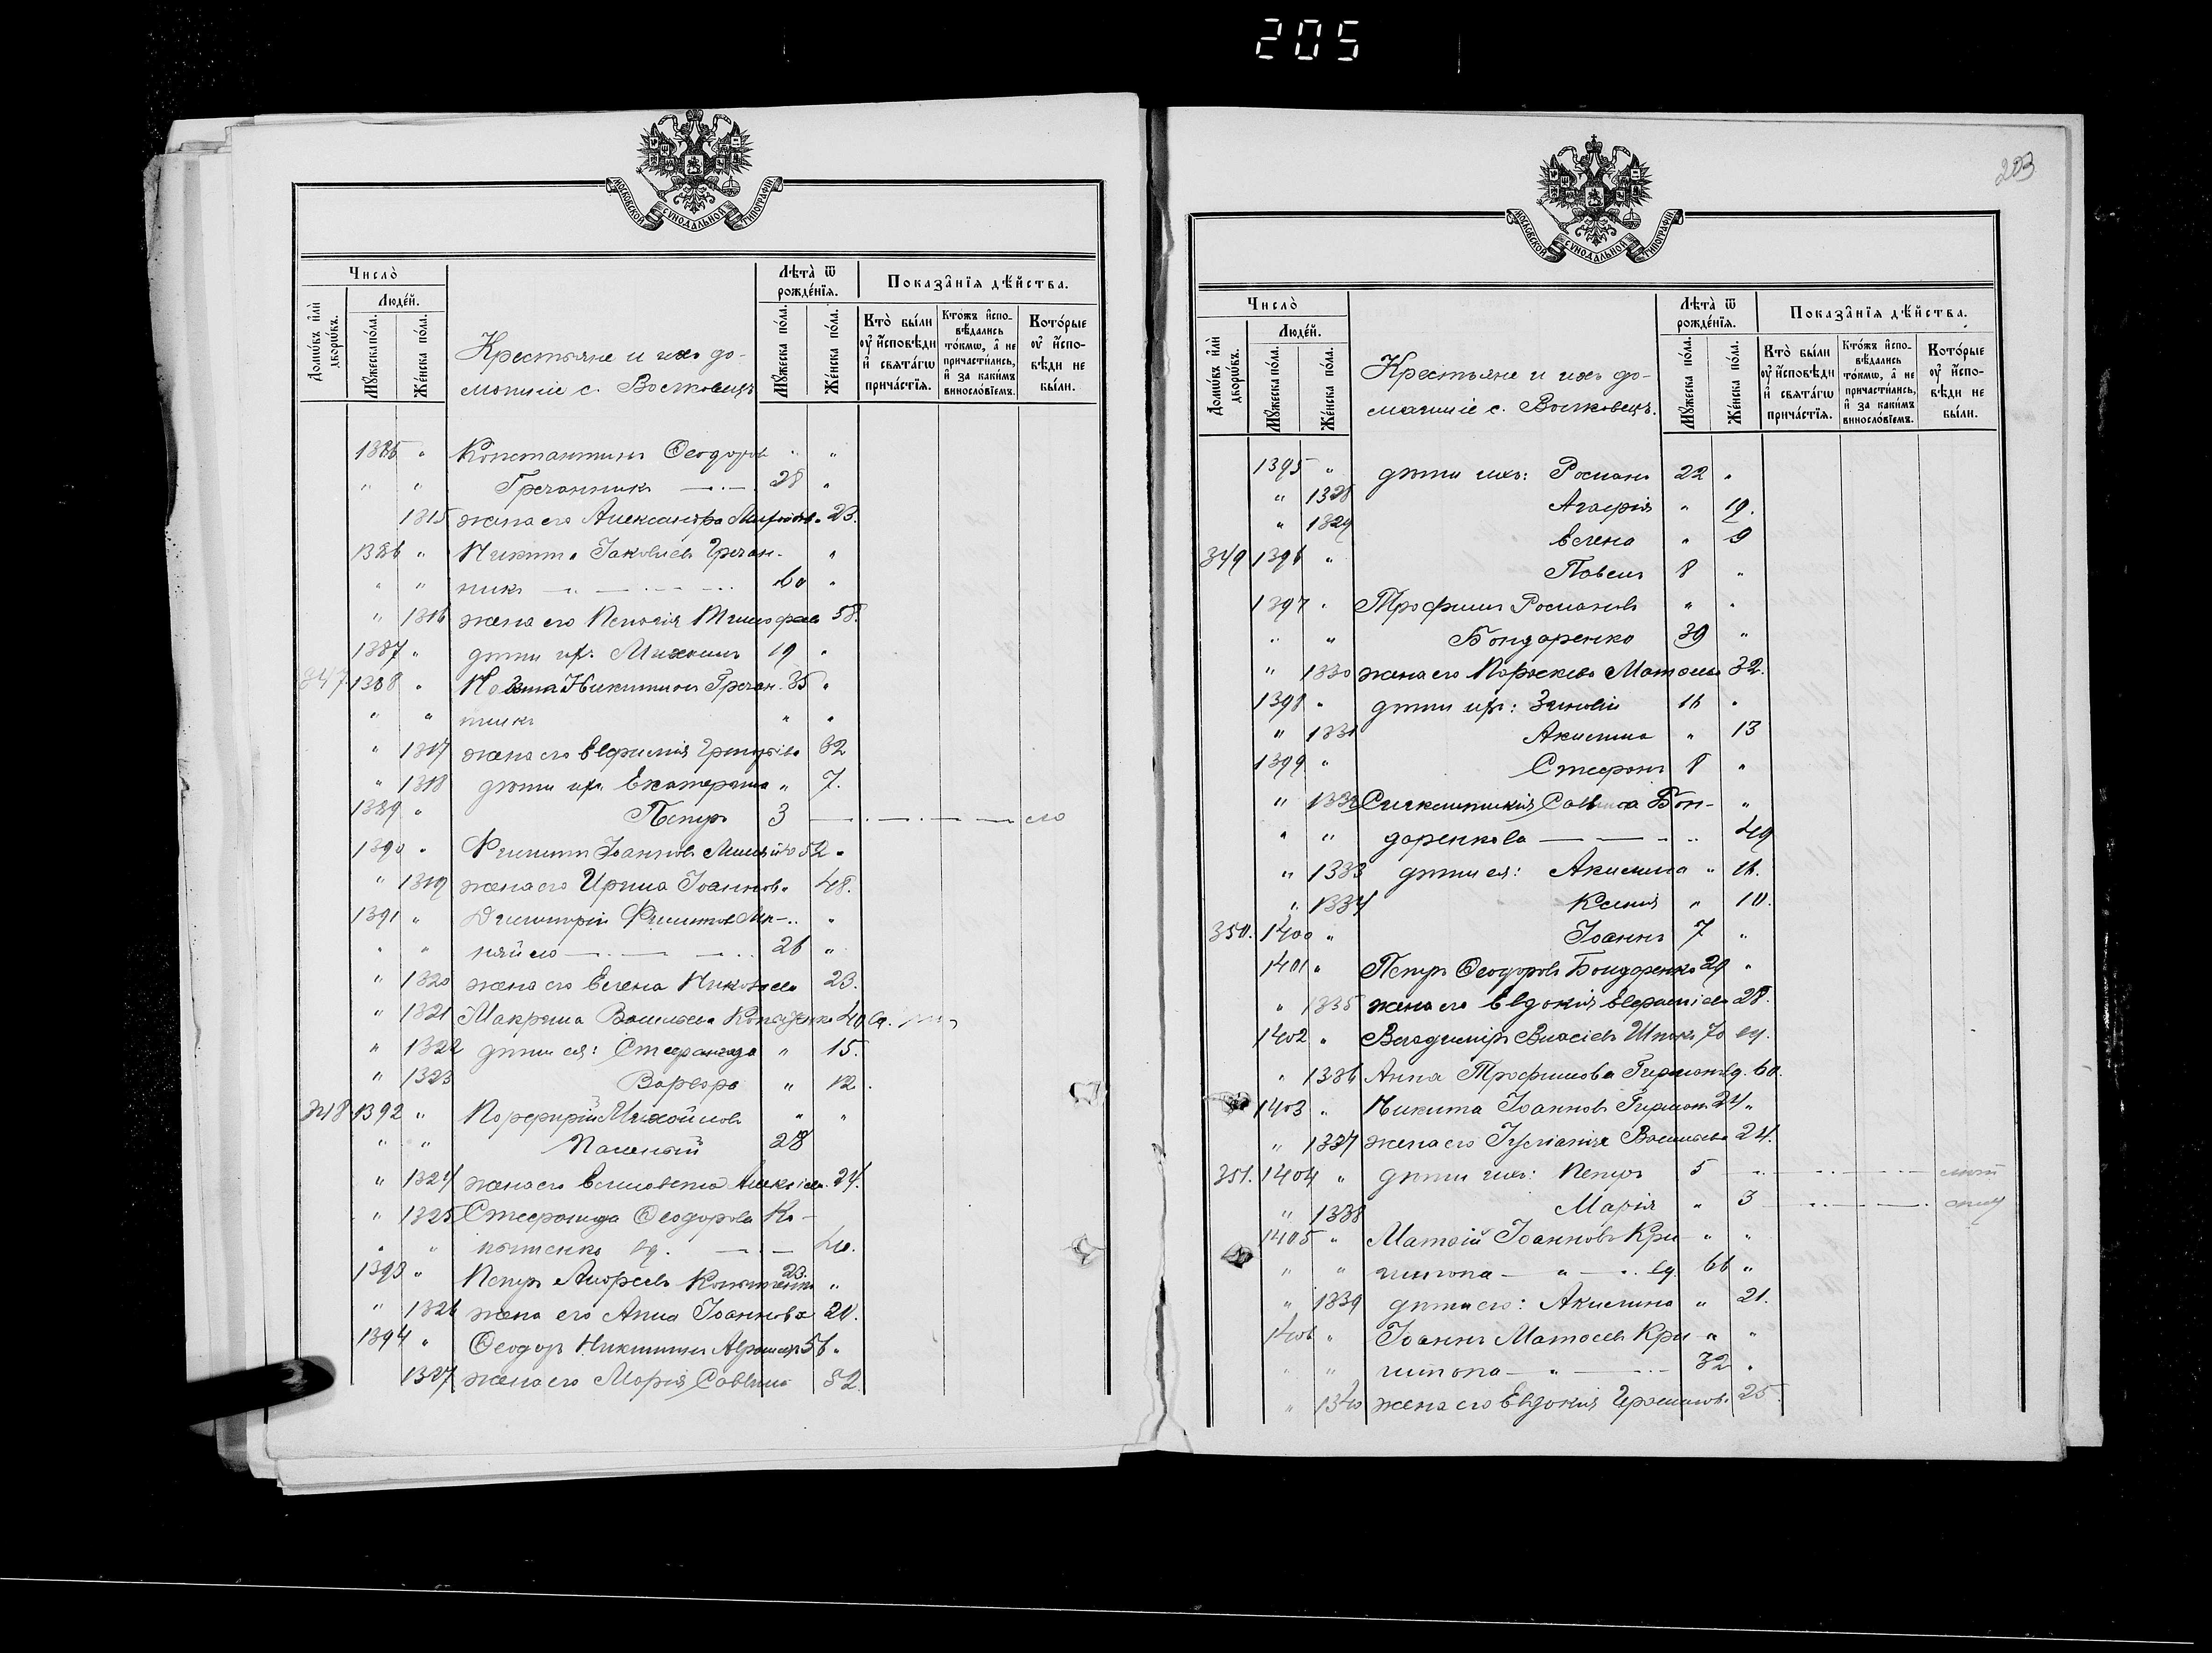 205
МОСКОВСКОЙ СѴНОДАЛЬНОЙ ТИПОГРАФІИ
Число̀
Лѣта̀ ѿ рожде́нїѧ.
Показа̂нїѧ дѣ́йства.
Домѡ́въ и҆лѝ дворѡ́въ.
Люде́й.
Мꙋ́жеска по́ла.
Же́нска по́ла.
Крестьяне и ихъ до-
машніе с. Волковецъ
Мꙋ́жеска по́ла.
Же́нска по́ла.
Кто̀ бы́ли ᲂу҆ и҆сповѣ́ди и҆ свѧта́гѡ прича́стїѧ.
Кто́жъ и҆спо-вѣ́дались то́кмѡ, а҆ не причасти́лись, и҆ за каки́мъ винослові́емъ.
Кото́рые ᲂу҆ и҆спо-вѣ́ди не бы́ли.
1385 " Константинъ Ѳеодоровъ " "
" " Гречанникъ 28 "
1315 жена его Александра 23.
1386 " Никита Іаковлевъ Гречан- "
" " никъ 60 "
" 1316 жена его Пелагія 58.
1387 " дѣти ихъ: Михаилъ 19 "
347 1388 " Никитинъ Гречан- 35 "
" " никъ " "
" 1317 жена его Евфимія 32
" 1318 дѣти ихъ Екатерина " 7.
1389 " Петръ 3
1390 " Филиппъ Іоанновъ 52 "
" 1319 жена его Ирина Іоаннова 48.
1391 " Димитрій Филиповъ "
" " 26 "
" 1320 жена его Елена Николаева 23.
" 1321 Макрина Васильева 40
" 1322 дѣти ея: Стефанида " 15.
" 1323 Варвара " 12.
348 1392 " Порфирій Михайловъ " "
" " 28
" 1324 жена его Елисавета Алексіева 24.
" 1325 Стефанида Ѳеодорова Ко-
" " пытенко вд. 40.
1393 " Петръ Андреевъ Копытенко 23. "
" 1326 жена его Анна Іоаннова 20.
1394 " Ѳеодоръ Никитинъ 56 "
1327 жена его Марія Саввина 52.
203
МОСКОВСКОЙ СѴНОДАЛЬНОЙ ТИПОГРАФІИ
Число̀
Лѣта̀ ѿ рожде́нїѧ.
Показа̂нїѧ дѣ́йства.
Домѡ́въ и҆лѝ дворѡ́въ.
Люде́й.
Мꙋ́жеска по́ла.
Же́нска по́ла.
Крестьяне и ихъ до-
машніе с. Волковецъ.
Мꙋ́жеска по́ла.
Же́нска по́ла.
Кто̀ бы́ли ᲂу҆ и҆сповѣ́ди и҆ свѧта́гѡ прича́стїѧ.
Кто́жъ и҆спо-вѣ́дались то́кмѡ, а҆ не причасти́лись, и҆ за каки́мъ винослові́емъ.
Кото́рые ᲂу҆ и҆спо-вѣ́ди не бы́ли.
1395 " дѣти ихъ: Романъ 22 "
" 1328 Агафія " 19.
" 1329 Елена " 9
349 1396 " Павелъ 8 "
1397 " Трофимъ Романовъ " "
" " Бондаренко 39 "
" 1330 жена его Параскева 32.
1398 " дѣти ихъ: Зиновій 16 "
" 1331 Акилина " 13
1399 " Стефанъ 8 "
" 1332 Синклитикія Саввина Бон- "
" " даренкова 49
" 1333 дѣти ея: Акилина " 16.
" 1334 Ксенія " 10.
350. 1400 " Іоаннъ 7 "
1401 " Петръ Ѳеодоровъ Бондаренко 29 "
" 1335 жена его Евдокія Евфиміева 28.
1402 " Владиміръ Власіевъ 70 вд.
" 1336 Анна Трофимова вд. 60.
1403 " Никита Іоанновъ 24 "
" 1337 жена его Іуліанія Васильева 24.
351. 1404 " дѣти ихъ: Петръ 5
" 1338 Марія " 3
1405 " Матѳій Іоанновъ Кри- " "
" " вд. 66 "
" 1339 дѣти его: Акилина " 21.
1406 " Іоаннъ Матѳеевъ Кри- " "
" " 32 "
" 1340 жена его Евдокія 25